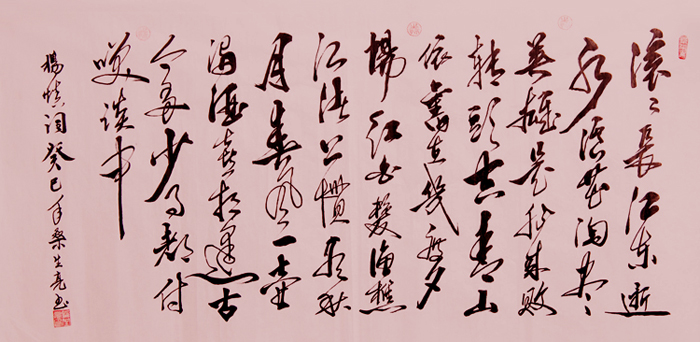 滚〻長江东逝
水浪花淘尽
英雄是非成败
转頭空青山
依舊在幾度夕
陽红白髮渔樵
江渚上惯看秋
月春风一壶
浊酒喜相逢古
今多少事都付
笑谈中
楊慎词癸巳年桑生亮书